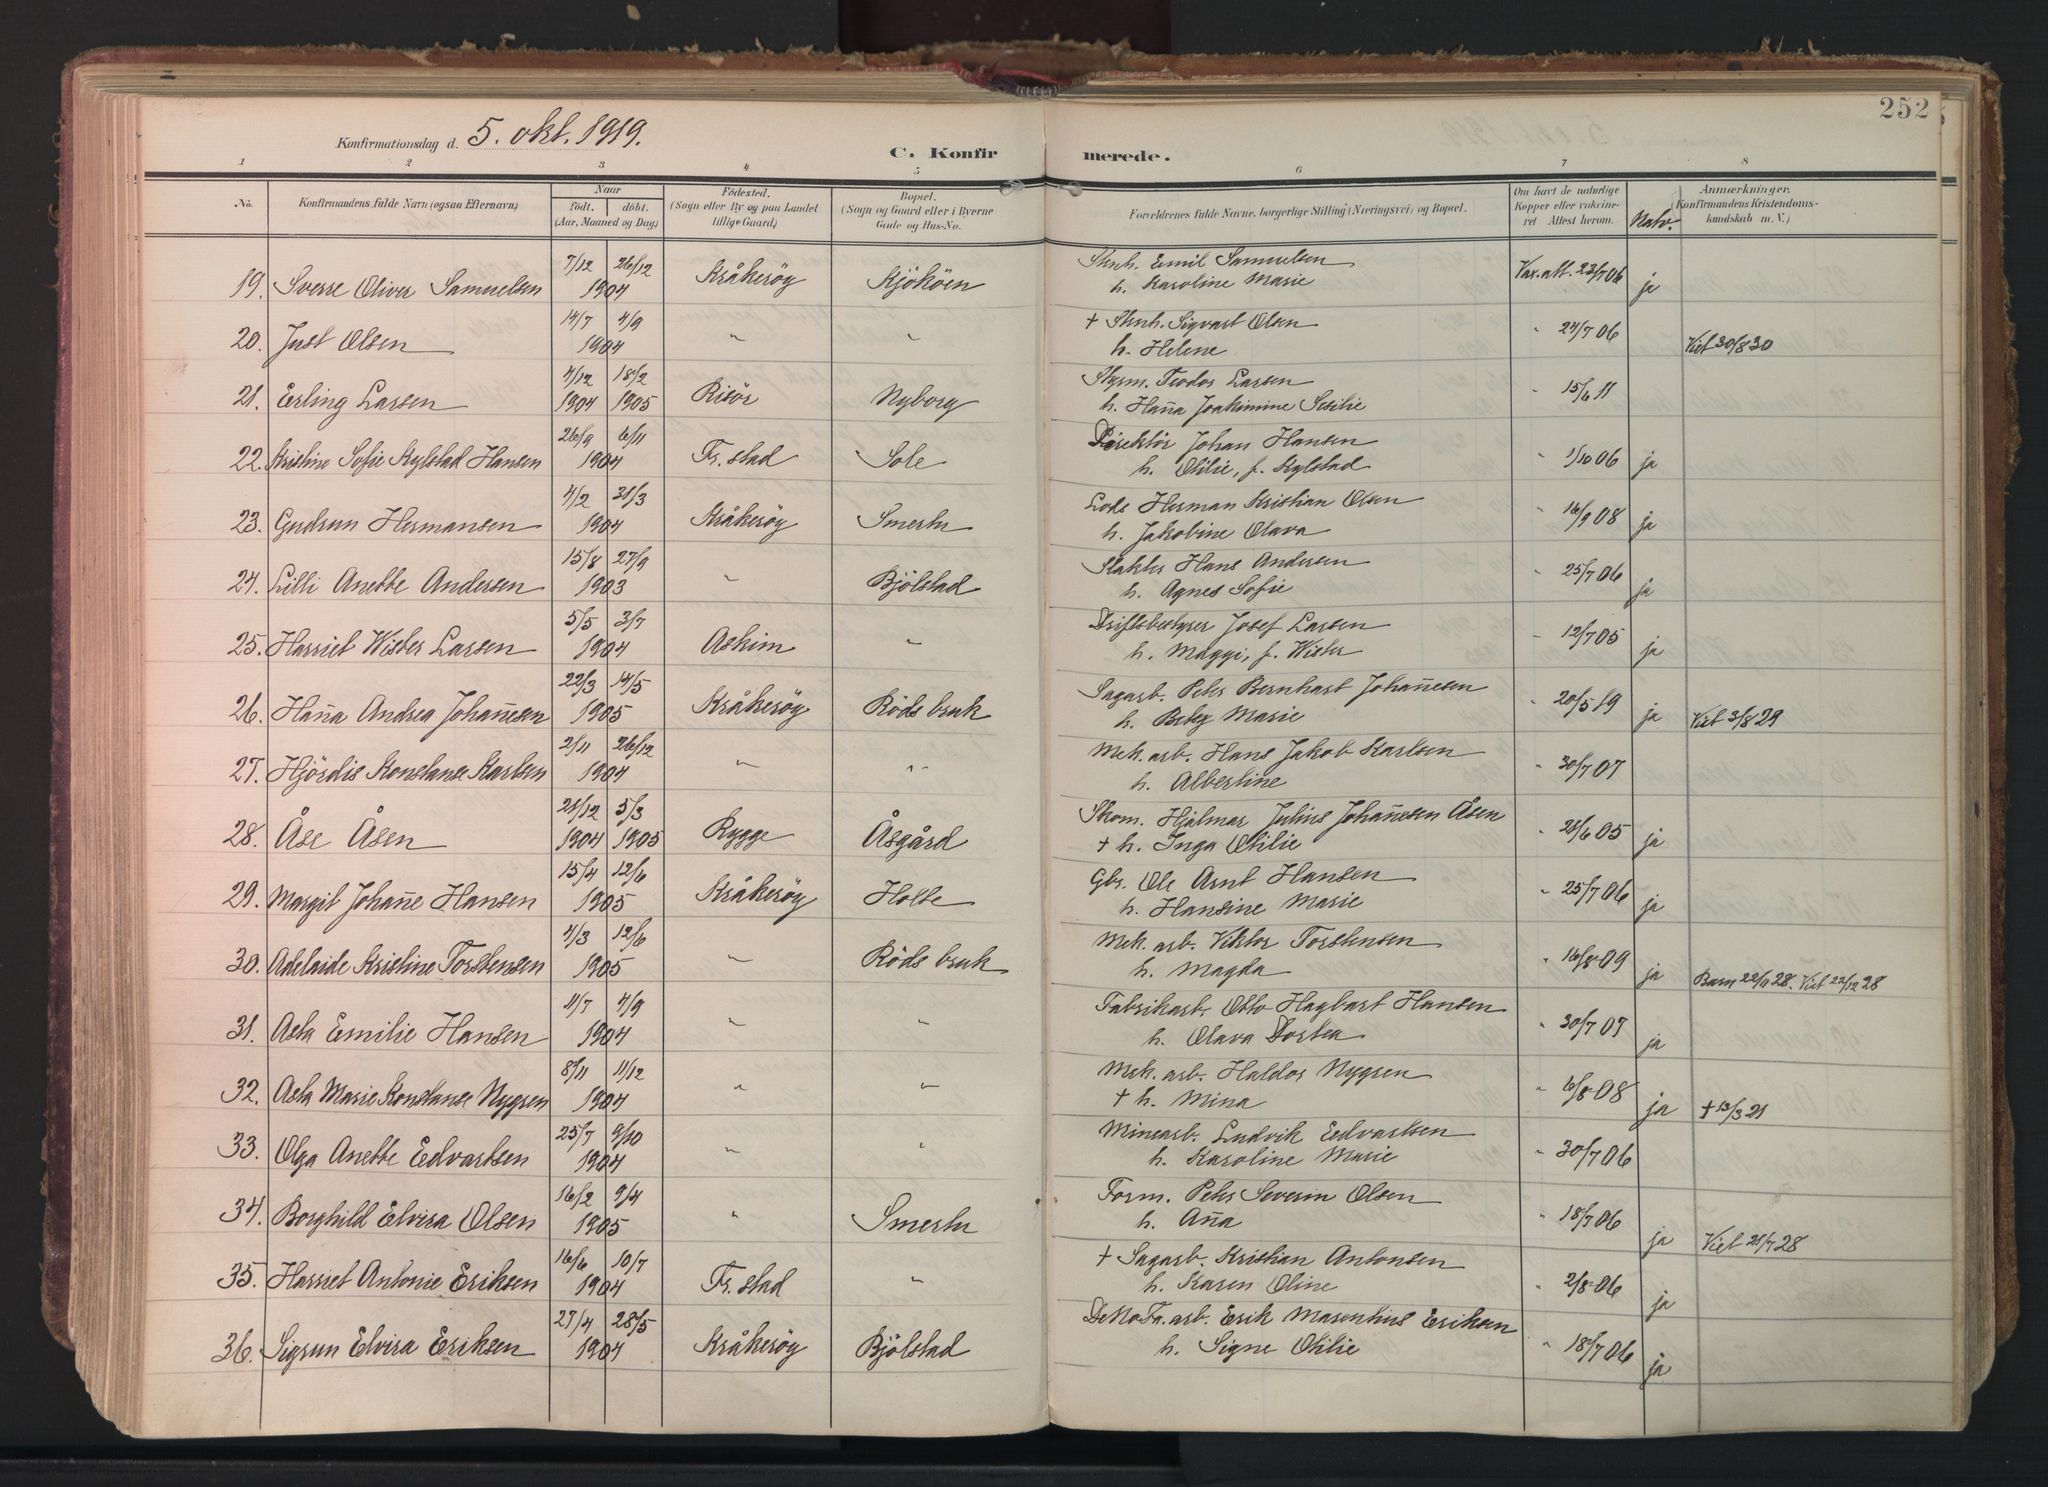 252
Konfirmationsdag d. 5. okt. 1919.
C. Konfirmerede.
1 2 3 4 5 6 7 8
No. Konfirmandens fulde Navn (ogsaa Efternavn) Naar født. døbt. (Aar, Maaned og Dag) Fødested. (Sogn eller By og paa Landet tillige Gaard) Bopæl. (Sogn og Gaard eller i Byerne Gade og Hus-No. Forældrenes fulde Navne, borgerlige Stilling (Næringsvei) og Bopæl. Om havt de naturlige Kopper eller vaccineret Attest herom. Natv. Anmærkninger. (Konfirmandens Kristendomskundskab m. V.)
7/12 26/12 Sknh. Emil Samuelsen
19. Sverre Oliver Samuelsen 1904 Kråkerøy Kjøköen h. Karoline Marie Vax. att. 23/7 06 ja
14/7 4/9 † Sknh. Sigvart Olsen
20. Just Olsen 1904 " " h. Helene " 24/7 06 Viet 30/8 30
4/12 18/2 Styrm. Teodor Larsen
21. Erling Larsen 1904 1905 Risör Nyborg h. Han̄a Joakimine Sesilie " 15/6 11
26/9 6/11 Direktör Johan Hansen
22. Kristine Sofie Kylstad Hansen 1904 Fr.stad Sole h. Otilie, f. Kylstad " 1/10 06 ja
4/2 31/3 Lods Herman Kristian Olsen
23. Gudrun Hermansen 1904 Kråkeröy Smertu h. Jakobine Olava " 16/9 08 ja
15/8 27/9 Slakter Hans Andersen
24. Lilli Anette Andersen 1903 " Bjölstad h. Agnes Sofie " 25/7 06 ja
5/5 3/7 Driftsbestyrer Josef Larsen
25. Harriet Wister Larsen 1904 Askim " h. Maggi, f. Wister " 12/7 05 ja
22/3 14/5 Sagarb. Peter Bernhart Johan̄esen
26. Han̄a Andrea Johan̄esen 1905 Kråkeröy Röds bruk h. Betzy Marie " 20/5 19 ja Viet 3/8 29
2/11 26/12 Mek. arb. Hans Jakob Karlsen
27. Hjördis Konstanse Karlsen 1904 " " h. Albertine " 30/7 07
21/12 5/3 Skom. Hjalmar Julius Johan̄esen Åsen
28. Åse Åsen 1904 1905 Rygge Åsgård † h. Inga Otilie " 21/6 05 ja
15/4 12/6 Gbr. Ole Arnt Hansen
29. Margit Johan̄e Hansen 1905 Kråkeröy Holte h. Hansine Marie " 25/7 06 ja
4/3 12/6 Mek. arb. Viktor Torstensen
30. Adelaide Kristine Torstensen 1905 " Röds bruk h. Magda " 16/8 09 ja Barn 22/9 28. Viet 22/12 28
11/7 4/9 Fabrikarb. Otto Hagbart Hansen
31. Asta Emilie Hansen 1904 " " h. Olava Dortea " 30/7 07 ja
8/11 11/12 Mek. arb. Haldor Nygren
32. Asta Marie Konstanse Nygren 1904 " " † h. Mina " 6/8 08 ja † 13/3 21
25/7 9/10 Minearb. Ludvik Edvartsen
33. Olga Anette Edvartsen 1904 " " h. Karoline Marie " 30/7 06
16/2 9/4 Form. Peter Severin Olsen
34. Borghild Elvira Olsen 1905 " Smertu h. An̄a " 18/7 06 ja Viet 21/7 28
16/6 10/7 † Sagarb. Kristian Antonsen
35. Harriet Antonie Eriksen 1904 Fr. stad " h. Karen Oline " 2/8 06 ja
27/4 28/5 DeNoFa. arb. Erik Masentius Eriksen
36. Sigrun Elvira Eriksen 1904 Kråkeröy Bjölstad h. Signe Otilie " 18/7 06 ja